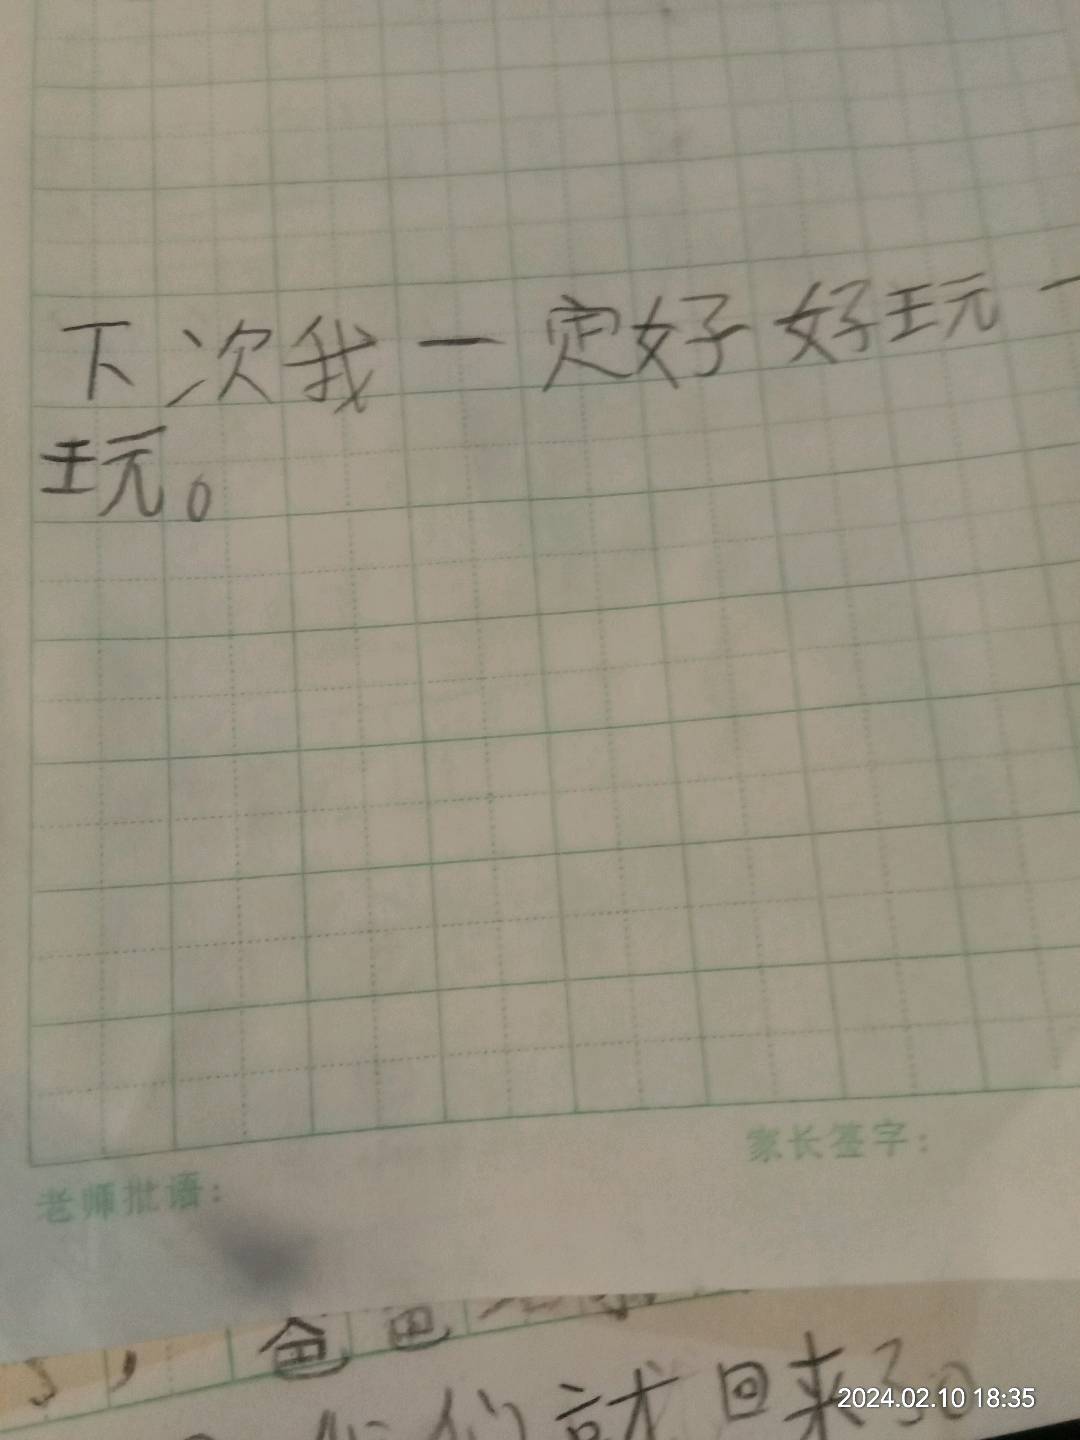 下次我一定好好玩一
玩。
家长签字：
老师批语：
，爸爸
们就回来了。
2024.02.10 18:35